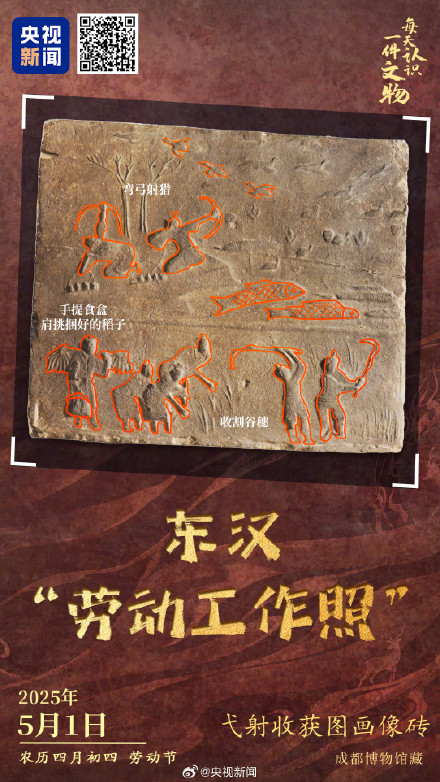 央视
新闻
每天认识
一件文物
弯弓射猎
手提食盒
肩挑捆好的稻子
收割谷穗
东汉
“劳动工作照”
2025年
5月1日
农历四月初四 劳动节
弋射收获图画像砖
成都博物馆藏
@央视新闻